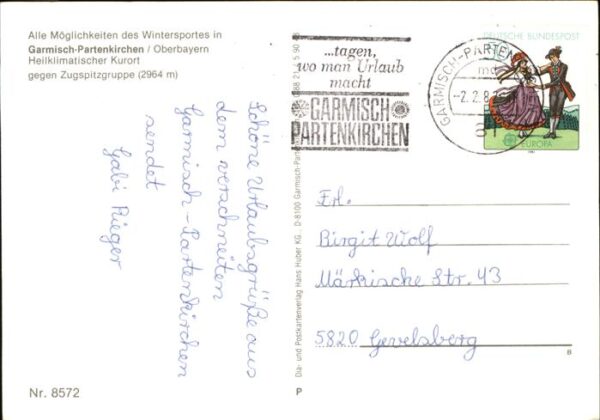 Alle Möglichkeiten des Wintersportes in
Garmisch-Partenkirchen / Oberbayern
Heilklimatischer Kurort
gegen Zugspitzgruppe (2964 m)
Schöne Urlaubsgrüße aus
dem verschneiten
Garmisch-Partenkirchen
sendet
Gabi Rieger
Nr. 8572
Dia- und Postkartenverlag Hans Huber KG., D-8100 Garmisch-Parten
P
...tagen,
wo man Urlaub
macht
GARMISCH
PARTENKIRCHEN
GARMISCH-PARTEN
-2.2.8
DEUTSCHE BUNDESPOST
EUROPA
Frl.
Birgit Wolf
Märkische Str. 43
5820 Gevelsberg
B